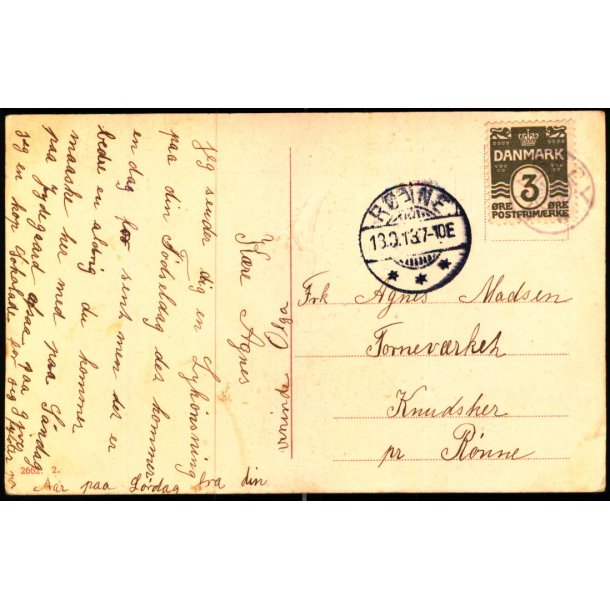 Kære Agnes
jeg sender dig en Lykønsning
paa din Fødseldag der kommer
en dag for sent men der er
bedre en aldrig du kommer
maaske her med paa Søndag
paa Jydegaard
jeg en hop Sjokolade
Aar paa Lørdag fra din
veninde Olga
2662 2.
DANMARK
3
ØRE ØRE
POSTFRIMÆRKE
RØNNE
13.9.13.7-10E
Frk Agnes Madsen
Torneværket
Knudsker
pr Rønne